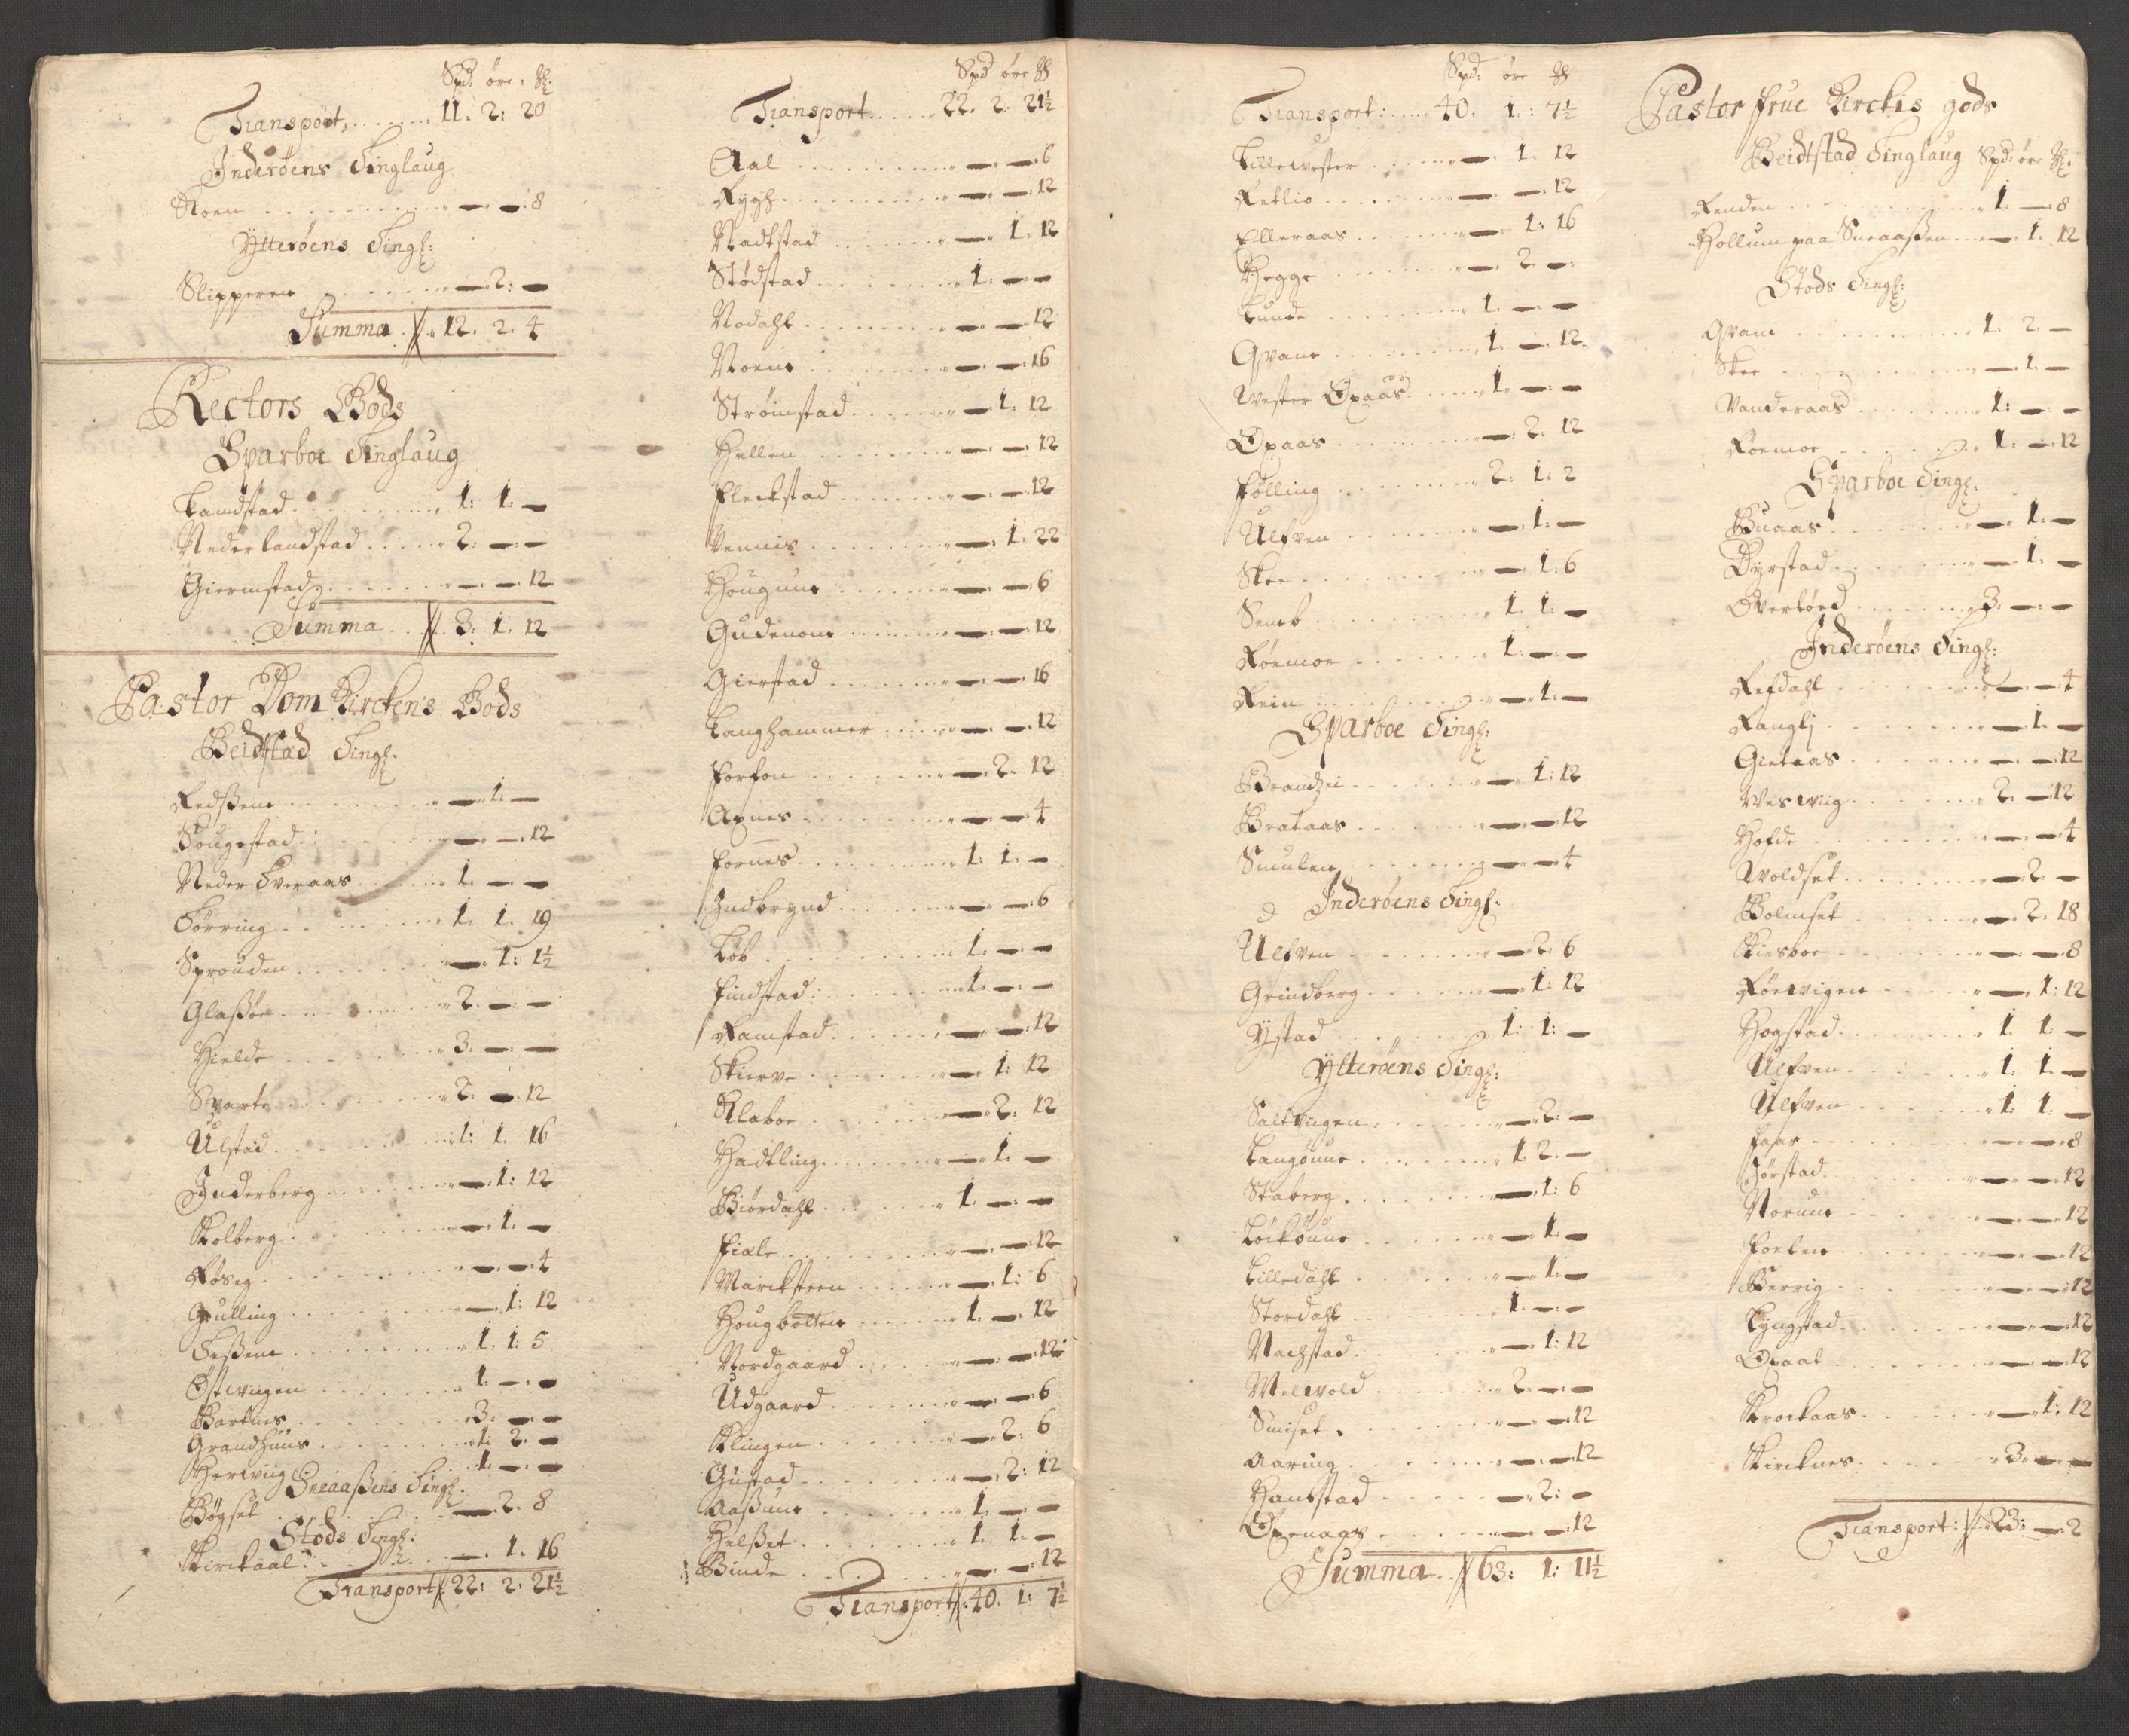 Spd: øre: ℔:
Transport, . . . . . . 11. 2: 20
Inderøens Tinglaug
Roen . . . . . . — — 8
Ytterøens Tingl:
Slipperen . . . . . — 2: —
Summa . // . 12. 2. 4
Rectors Gods
Sparboe Tinglaug
Landstad . . . . . . 1: 1. —
Neder Landstad . . . . 2: — —
Giermstad . . . . . — — 12
Summa . . // . 3: 1. 12
Pastor Dom Kirckens Gods
Beidstad Tingl.
Redßem . . . . . . — 1. —
Sougestad . . . . . — — 12
Neder Tveraas . . . . 1. — —
Tørring . . . . . . 1. 1. 19
Sprouden . . . . . — 1: 1½
Glaßøe . . . . . . 2. — —
Hielde . . . . . . 3. — —
Svarte . . . . . . 2. — 12
Ulstad . . . . . . 1: 1. 16
Inderberg . . . . . — 1: 12
Kolberg . . . . . . — 1. —
Røseg . . . . . . — — 4
Qvulling . . . . . — 1: 12
Teßem . . . . . . 1. 1: 5
Østwiigen . . . . . 1. — —
Bartnes . . . . . . 3: — —
Grandhuus . . . . . 1: 2. —
Herwiig . . . . . . 1. — —
Sneaaßens Tingl.
Bøgset . . . . . . — 2. 8
Stods Tingl:
Kirckaal . . . . . — 1. 16
Transport // 22: 2: 21½
Spd øre ℔
Transport . . . . . 22. 2. 21½
Aal . . . . . . — — 6
Rygh . . . . . . — — 12
Nadkstad . . . . . — 1. 12
Stødstad . . . . . 1. — —
Nodahl . . . . . . — — 12
Noem . . . . . . — — 16
Strømstad . . . . . — 1. 12
Hellen . . . . . . — — 12
Fleckstad . . . . . — — 12
Vennis . . . . . . — 1. 22
Hougum . . . . . . — — 6
Gudenom . . . . . — — 12
Gierstad . . . . . — — 16
Langhammer . . . . — — 12
Forfon . . . . . . — 2. 12
Apnes . . . . . . — — 4
Fornes . . . . . . 1: 1. —
Indbrynd . . . . . — — 6
Løb . . . . . . 1. — —
Findstad . . . . . 1. — —
Ramstad . . . . . — — 12
Skierve . . . . . — 1: 12
Klaboe . . . . . — 2: 12
Hadkling . . . . . — 1. —
Biørdahl . . . . . 1. — —
Fixle . . . . . . — — 12
Marcksteen . . . . — 1: 6
Hougbotten . . . . 1. — 12
Nordgaard . . . . . — — 12
Udgaard . . . . . — — 6
Klingen . . . . . — 2: 6
Gustad . . . . . — 2: 12
Aaßum . . . . . . 1. — —
Helßet . . . . . . 1. 1. —
Binde . . . . . . — — 12
Transport // . 40. 1: 7½
Spd: øre ℔
Transport: . . . . 40. 1.: 7½
Lillewester . . . . — 1. 12
Retlio . . . . . — — 12
Elleraas . . . . . — 1: 16
Hegge . . . . . . — 2. —
Lunde . . . . . . 1. — —
Qvam . . . . . . 1. — 12.
Wester Opaas . . . . 1. — —
Opaas . . . . . . — 2. 12
Følling . . . . . . 2. 1. 2
Ulfven . . . . . . — 1. —
Skee . . . . . . — 1: 6
Semb . . . . . . 1. 1: —
Røemoe . . . . . . 1. — —
Rein . . . . . . — 1. —
Sparboe Tingl:
Brandzei . . . . . — 1: 12
Brataas . . . . . — — 12
Smulen . . . . . — — 4
Inderøens Tingl.
Ulfven . . . . . — 2: 6
Grindberg . . . . . — 1: 12
Ystad . . . . . . 1: 1: —
Ytterøens Tingl:
Saltviigen . . . . . — 2: —
Langønne . . . . . 1. 2. —
Staberg . . . . . — 1: 6
Løckønne . . . . . — 1. —
Lilledahl . . . . . — 1. —
Stordahl . . . . . 1. — —
Nachstad . . . . . — 1: 12
Melwold . . . . . 2. — —
Smiset . . . . . . — — 12
Aaring . . . . . — — 12
Hanbstad . . . . . — 2: —
Openaas . . . . . — — 12
Summa . . // 63: 1: 11½
Pastor Frue Kirckes gods
Beidtstad Tinglaug Spd: øre ℔.
Renden . . . . . . 1. — 8
Hollum paa Sneaaßen . . — 1. 12
Stods Tingl:
Qvam . . . . . . 1. 2. —
Skee . . . . . . — 1. —
Vanderaas . . . . . 1: — —
Røemoe . . . . . . 1. — 12
Sparboe Tingl.
Buaas . . . . . . — 1. —
Dyrstad . . . . . — 1. —
Overløed . . . . . 3. — —
Inderøens Tingl:
Refdahl . . . . . — — 4
Ranglj . . . . . — 1. —
Gietaas . . . . . — — 12
Weswiig . . . . . 2. — 12
Hofde . . . . . . — — 4
Woldset . . . . . — 2. —
Bolmset . . . . . — 2. 18
Kiesboe . . . . . — — 8
Røewigen . . . . . — 1: 12
Hogstad . . . . . 1. 1. —
Ulfven . . . . . . 1. 1. —
Ulfven . . . . . . 1: 1. —
Faar . . . . . . — — 8
Jørstad . . . . . — — 12
Norum . . . . . . — — 12
Foelen . . . . . — — 12
Berrig . . . . . . — — 12
Lyngstad . . . . . — — 12
Opaal . . . . . . — — 12
Krockaas . . . . . — 1: 12
Kircknes . . . . . 3. — —
Transport: // . 23: — 2